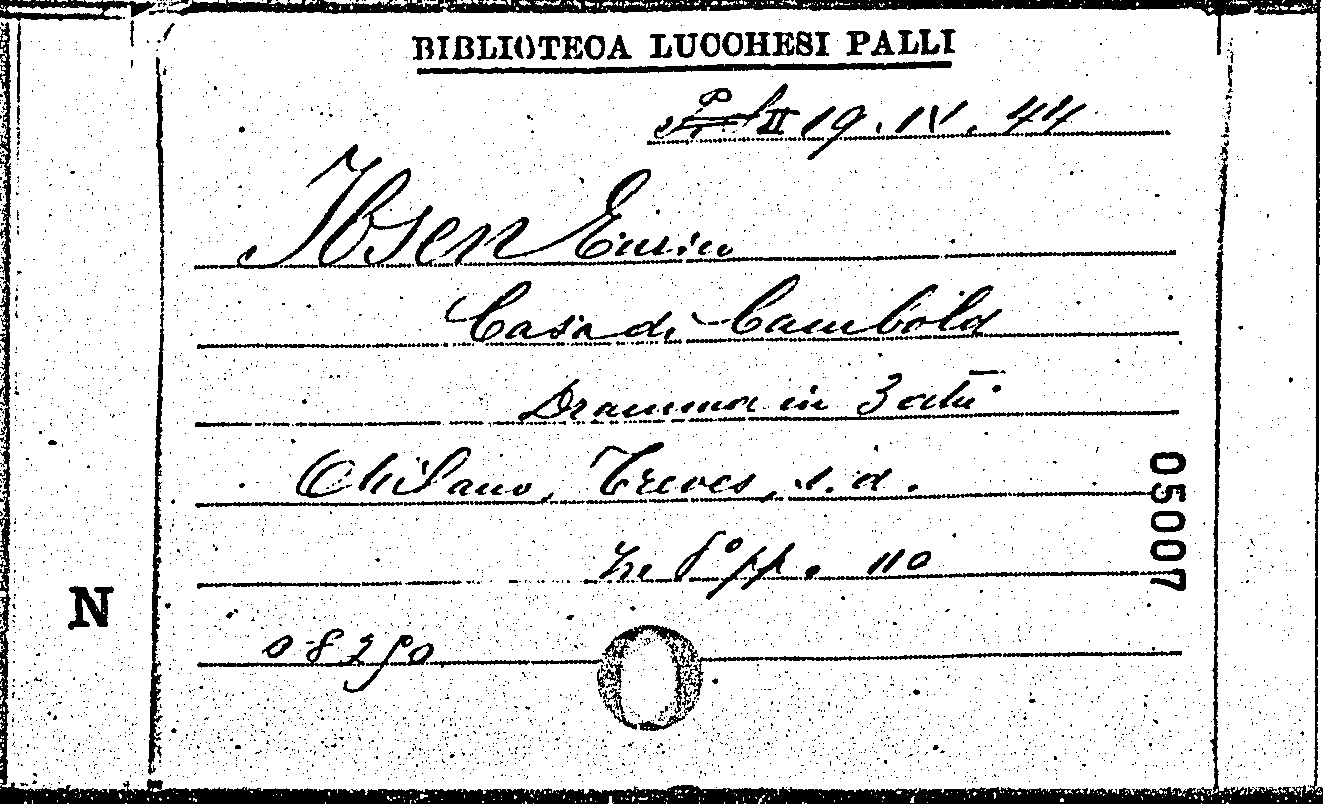 BIBLIOTECA LUCCHESI PALLI
II 19. IV. 44
Ibsen Enrico
Casa di Bambola
Dramma in 3 atti
Milano, Treves, s. d.
in 8° pp. 110
05007
N